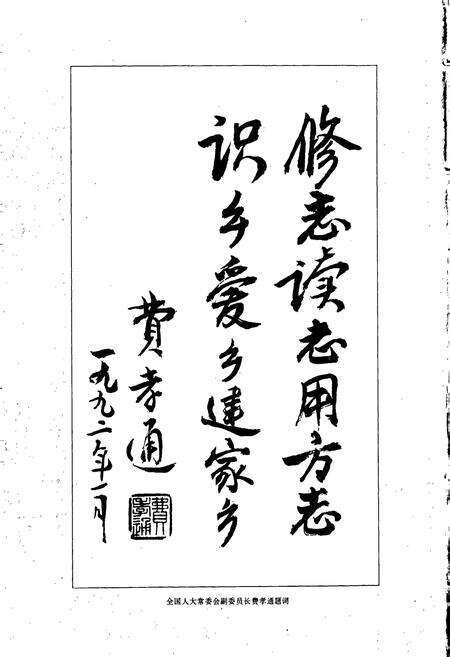 修志读志用方志
识乡爱乡建家乡
费孝通
一九九二年一月
費孝通
全国人大常委会副委员长费孝通题词